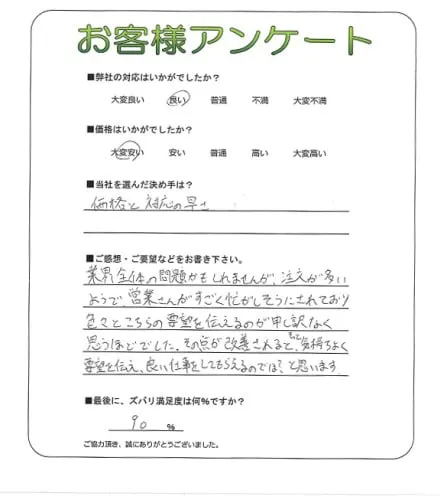 お客様アンケート
■弊社の対応はいかがでしたか？
大変良い 良い 普通 不満 大変不満
■価格はいかがでしたか？
大変安い 安い 普通 高い 大変高い
■当社を選んだ決め手は？
価格と対応の早さ
■ご感想・ご要望などをお書き下さい。
業界全体の問題かもしれませんが、注文が多い
ようで営業さんがすごく忙がしそうにされており
色々とこちらの要望を伝えるのが申し訳なく
思うほどでした。その点が改善されると、もっと気持ちよく
要望を伝え、良い仕事をしてもらえるのでは？と思います。
■最後に、ズバリ満足度は何%ですか？
90 %
ご協力頂き、誠にありがとうございました。